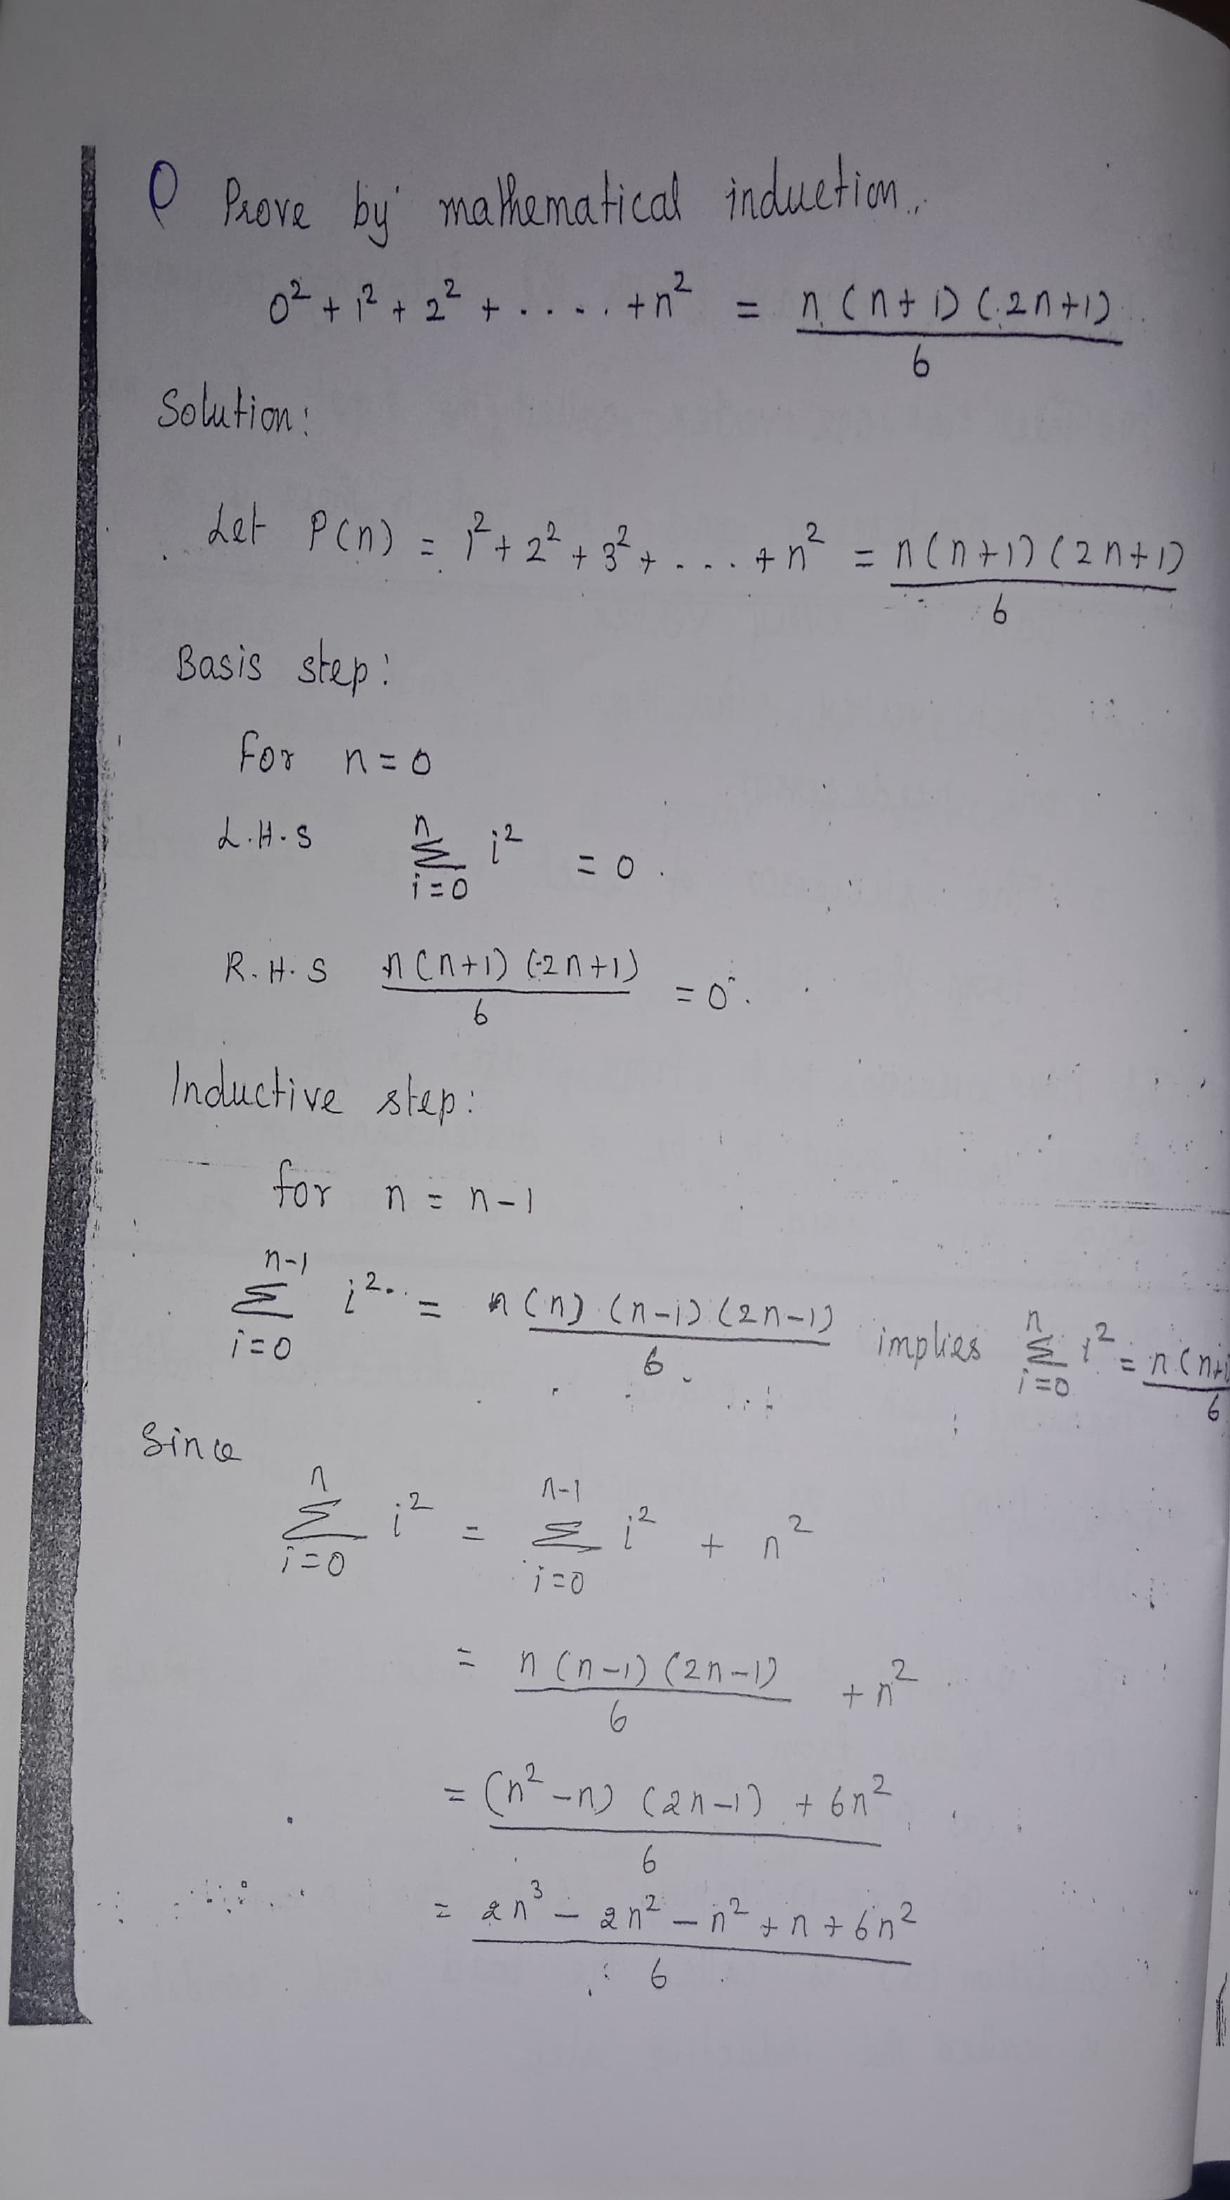 Q Prove by mathematical induction.
0² + 1² + 2² + ..... + n² = n(n+1)(2n+1) / 6
Solution:
Let P(n) = 1² + 2² + 3² + .... + n² = n(n+1)(2n+1) / 6
Basis step:
For n = 0
L.H.S n Σ i=0 i² = 0.
R.H.S n(n+1)(2n+1) / 6 = 0.
Inductive step:
for n = n-1
n-1 Σ i=0 i² = (n)(n-1)(2n-1) / 6 implies n Σ i=0 i² = n(n+1 / 6
Since
n Σ i=0 i² = n-1 Σ i=0 i² + n²
= n(n-1)(2n-1) / 6 + n²
= (n²-n)(2n-1) + 6n² / 6
= 2n³ - 2n² - n² + n + 6n² / 6